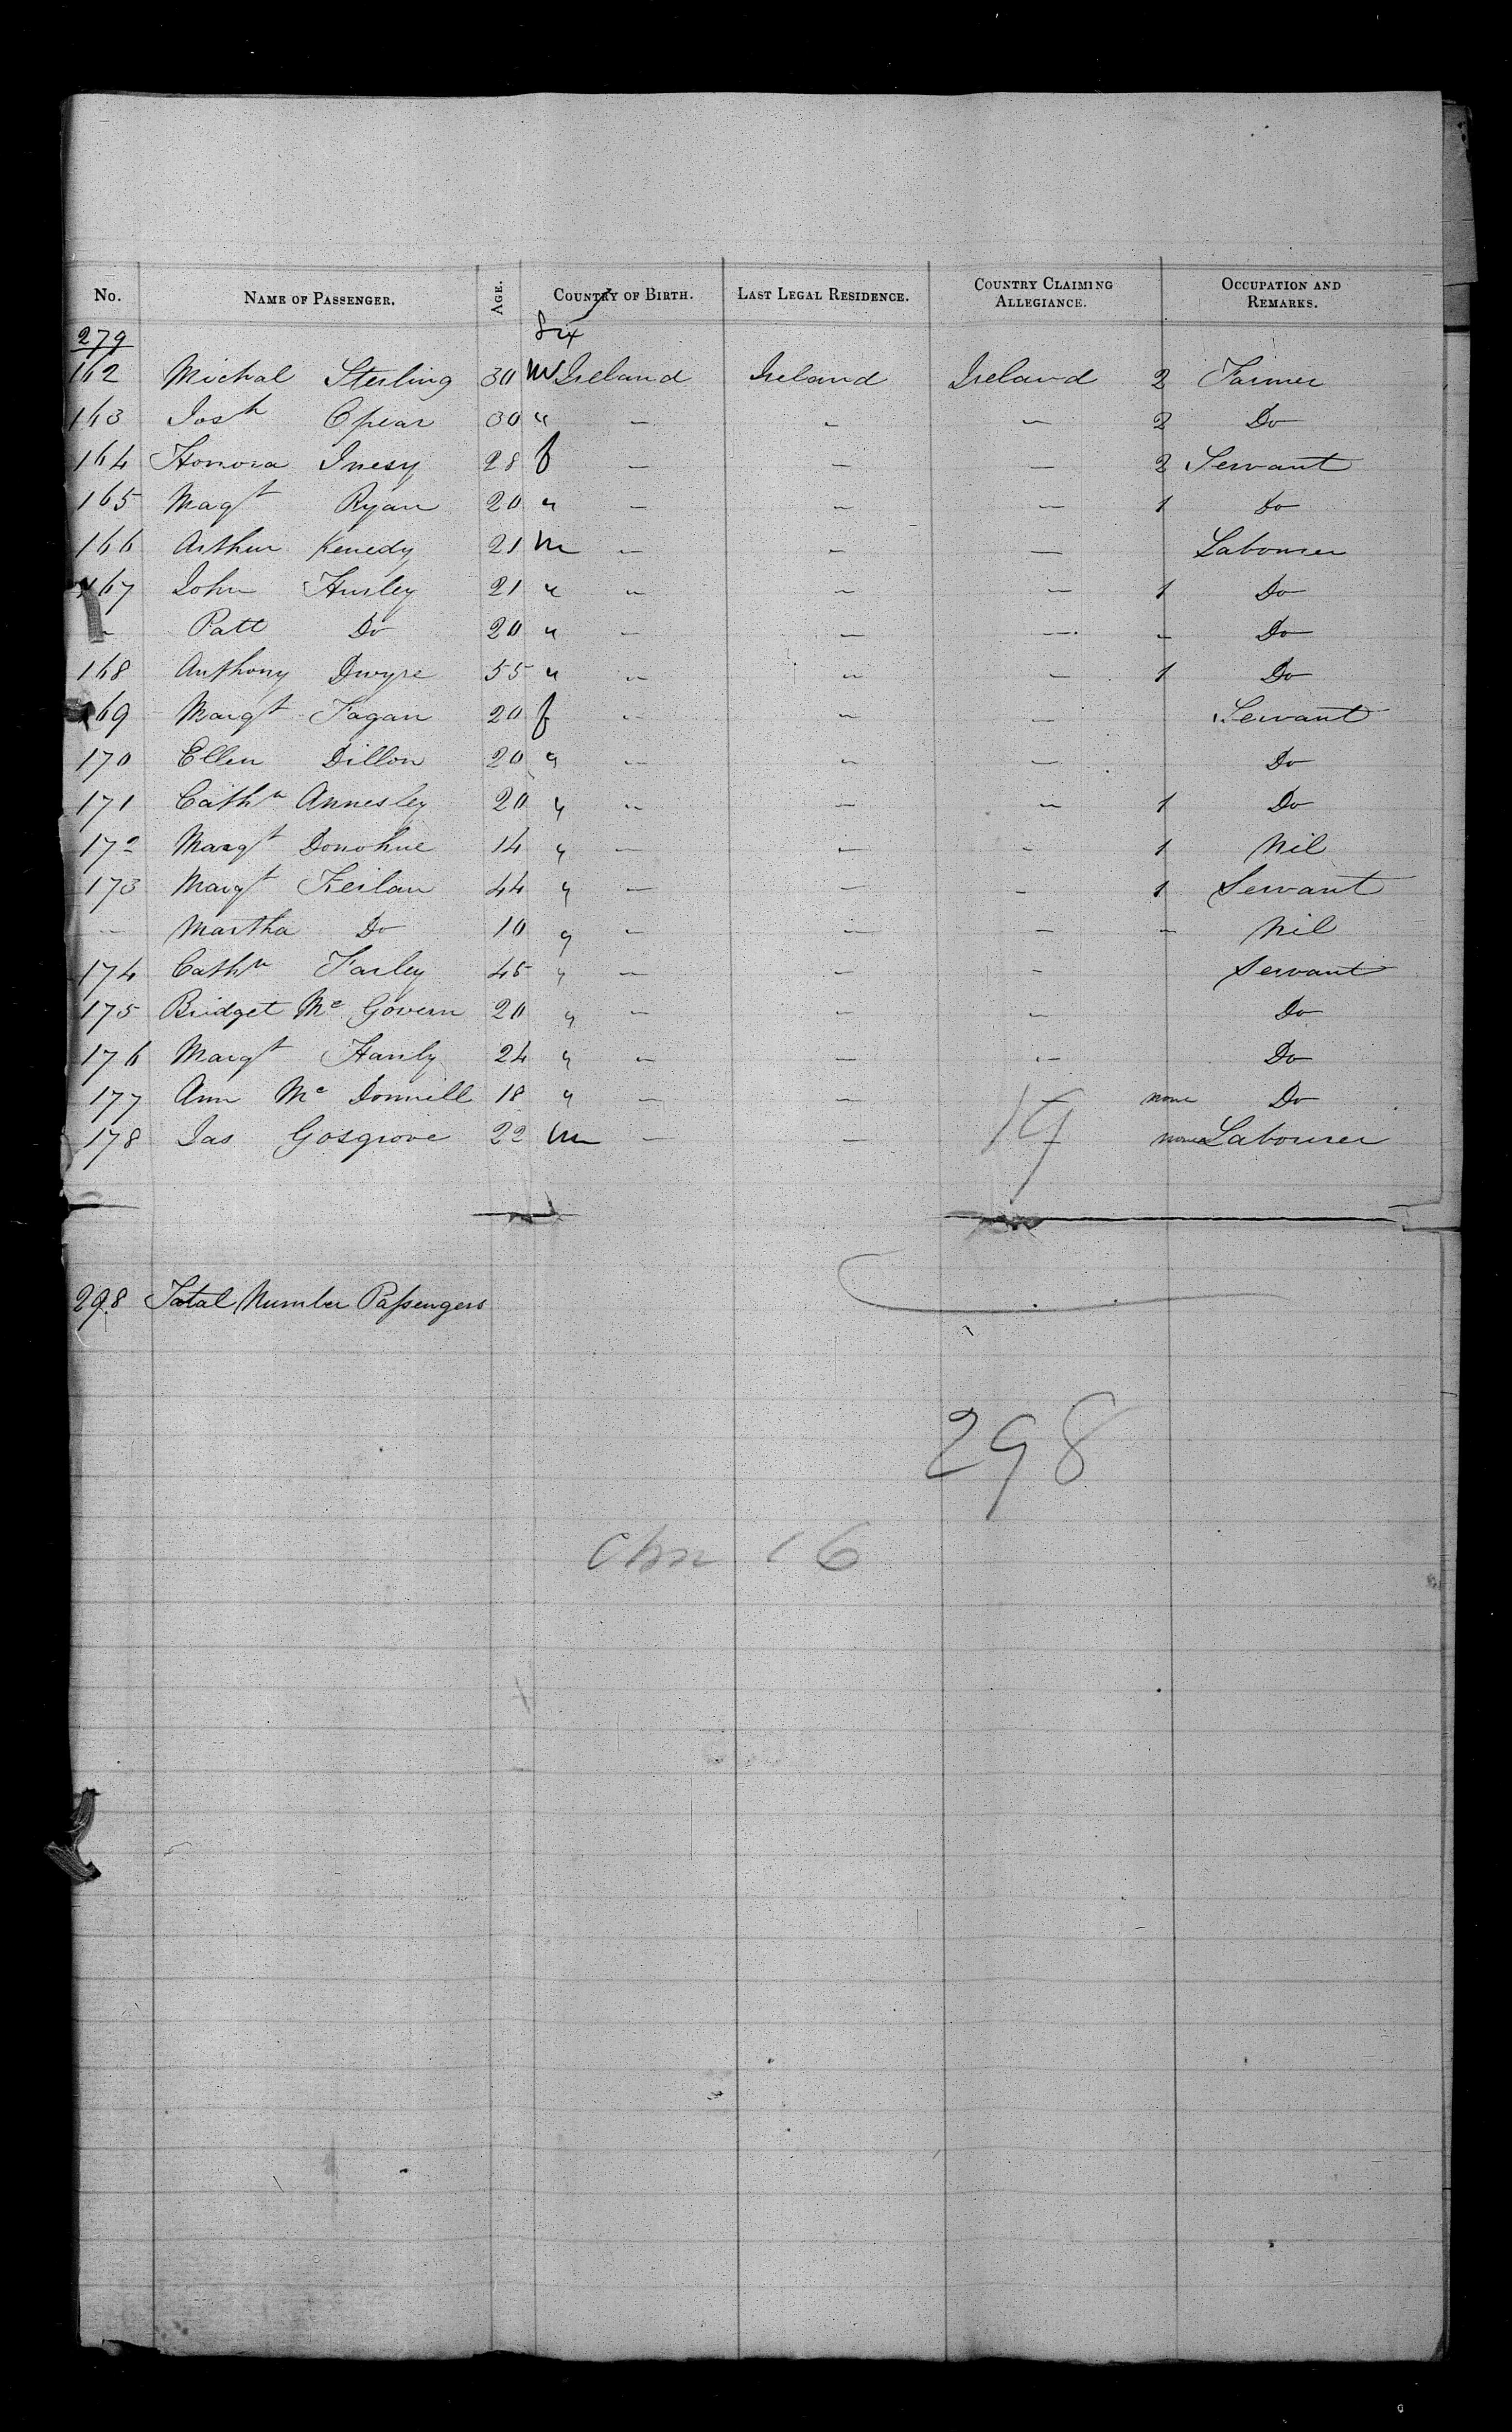 No. NAME OF PASSENGER. AGE. COUNTRY OF BIRTH. LAST LEGAL RESIDENCE. COUNTRY CLAIMING ALLEGIANCE. OCCUPATION AND REMARKS.
279 Sex
162 Michal Sterling 30 m Ireland Ireland Ireland 2 Farmer
163 Josh 30 " — — — 2 Do
164 Honora 28 f — — — 2 Servant
165 Magt Ryan 20 " — — — 1 Do
166 Arthur Kenedy 21 m — — — Labourer
167 John Hurley 21 " — — — 1 Do
— Patt Do 20 " — — — — Do
168 Anthony Dwyre 55 " — — — 1 Do
169 Margt Fagan 20 f — — — Servant
170 Ellen Dillon 20 " — — — Do
171 Cathn Annesley 20 " — — — 1 Do
172 Margt Donohue 14 " — — — 1 Nil
173 Margt Keilan 44 " — — — 1 Servant
— Martha Do 10 " — — — — Nil
174 Cathn Farley 45 " — — — Servant
175 Bridget Mc Govern 20 " — — — Do
176 Margt Hanly 24 " — — — Do
177 Ann Mc Donnill 18 " — — — none Do
178 Jas Gosgrove 22 m — — — none Labourer
19
298 Total Number Passengers
298
16